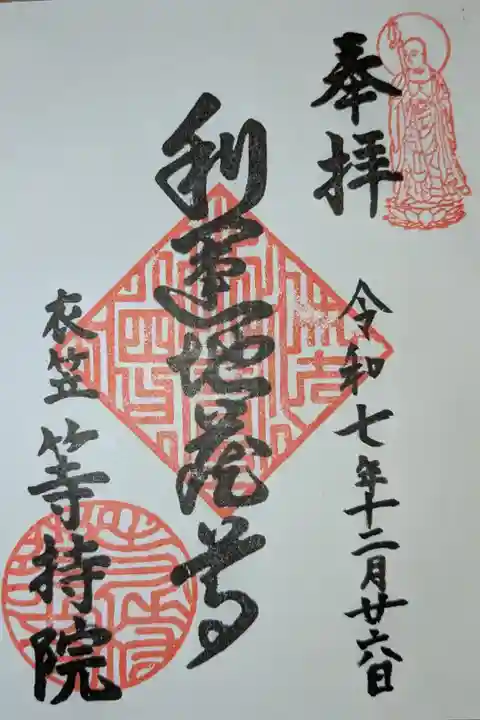 奉拝
令和七年十二月廿六日
利運地蔵尊
衣笠
等持院